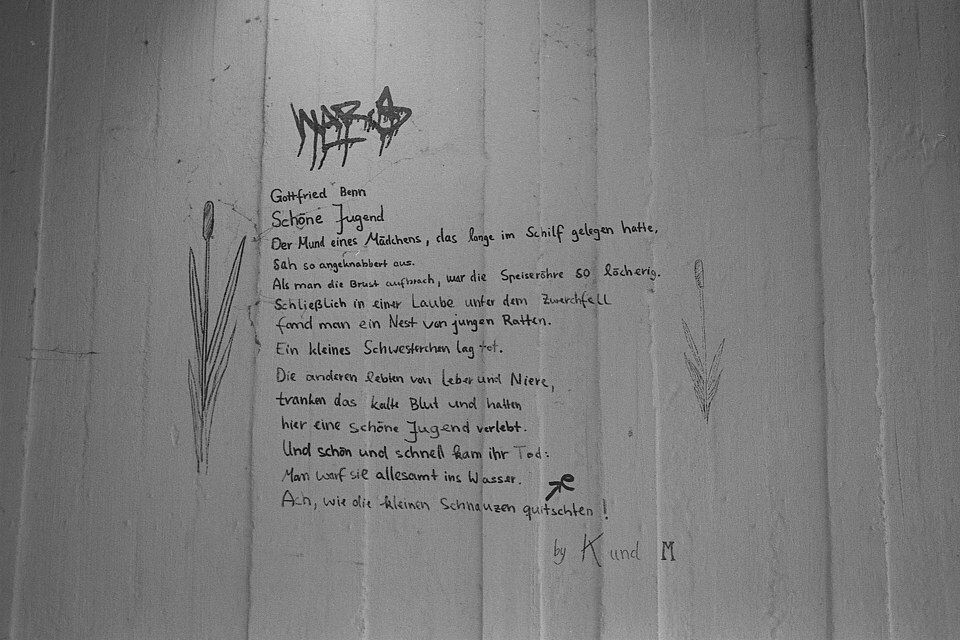 Gottfried Benn
Schöne Jugend
Der Mund eines Mädchens, das lange im Schilf gelegen hatte,
sah so angeknabbert aus.
Als man die Brust aufbrach, war die Speiseröhre so löcherig.
Schließlich in einer Laube unter dem Zwerchfell
fand man ein Nest von jungen Ratten.
Ein kleines Schwesterchen lag tot.
Die anderen lebten von Leber und Niere,
tranken das kalte Blut und hatten
hier eine schöne Jugend verlebt.
Und schön und schnell kam ihr Tod:
Man warf sie allesamt ins Wasser.
e
Ach, wie die kleinen Schnauzen quitschten!
by K und M